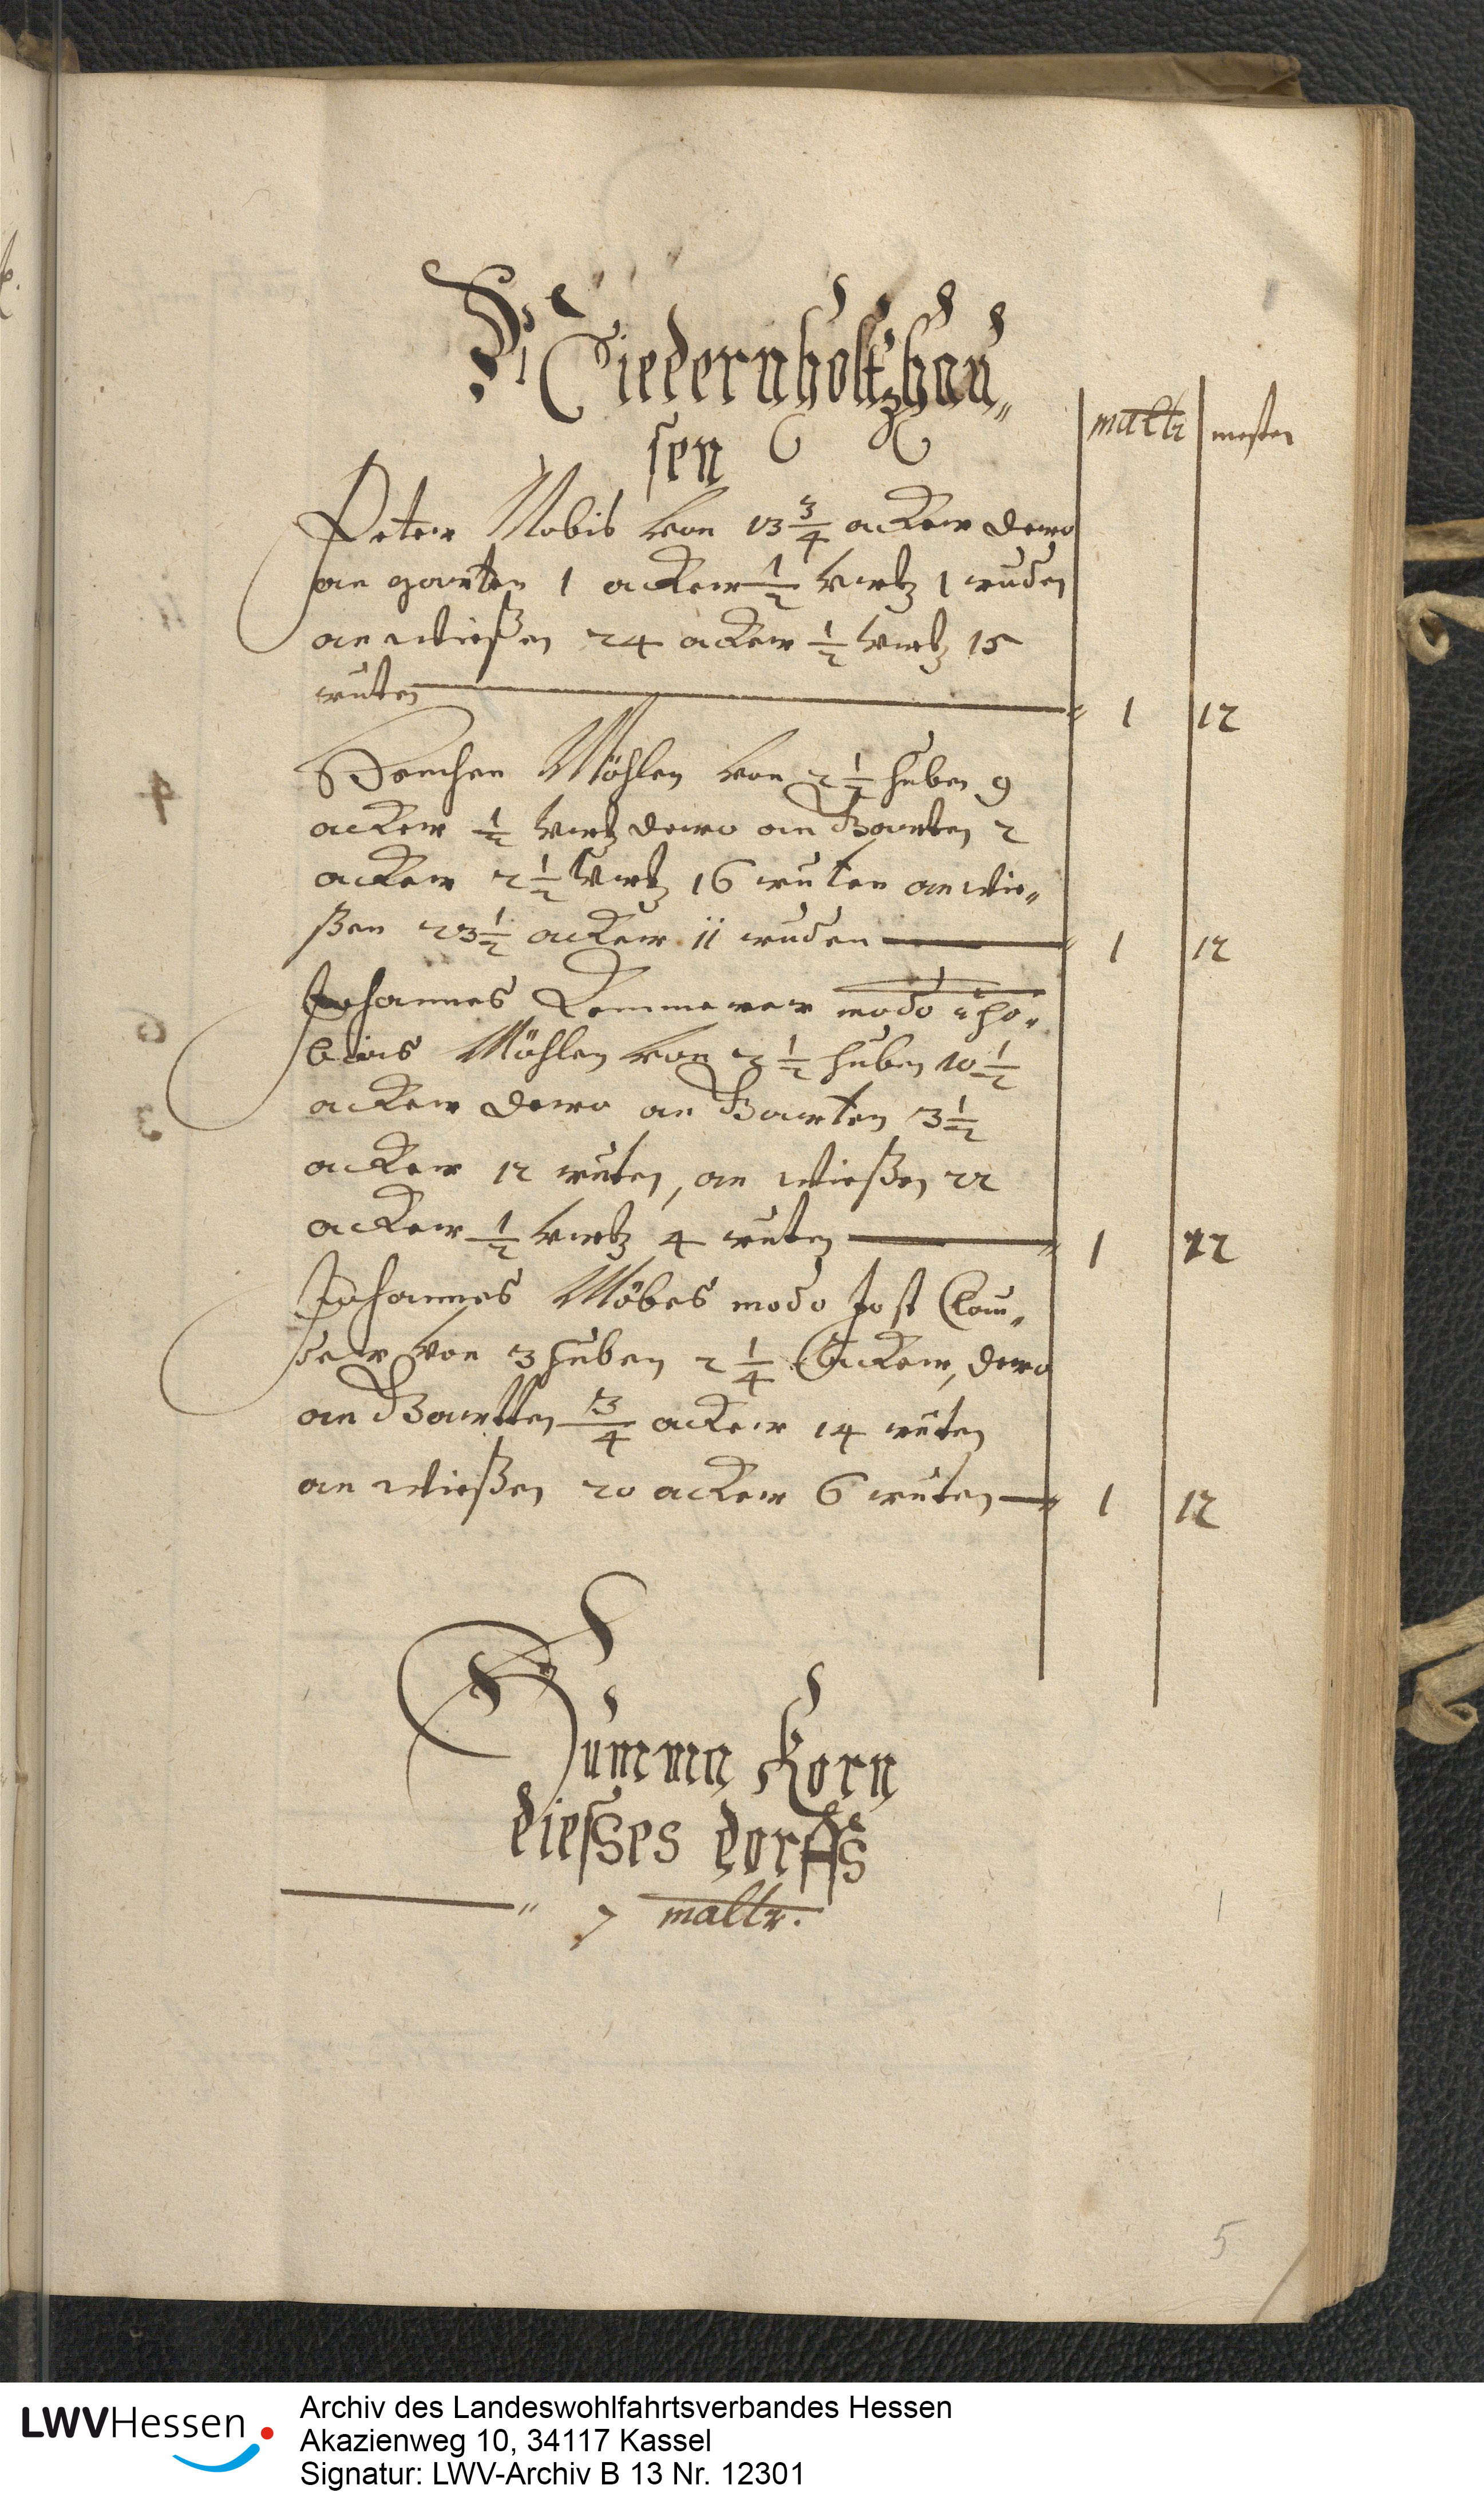 Niedernholtzhau„
sen
maltr mesten
Peter Mobis von 13 3/4 acker dero
an garten 1 acker 1/2 virtz 1 ruden
an wießen 24 acker 1/2 virtz 15
ruten 1 12
Möhlen von 2 1/2 huben 9
acker 1/2 virtz dero an Garten 2
acker 2 1/2 virtz 16 ruten an wie„
ßen 23 1/2 acker 11 ruden 1 12
Johannes Kemmerer modo Tho„
bias Möhlen von 2 1/2 huben 10 1/2
acker dero an Garten 3 1/2
acker 12 ruten, an wießen 22
acker 1/2 virtz 4 ruten 1 12
Johannes Möbes modo Jost Clau„
ser von 3 huben 2 1/4 Acker, dero
an Gartten 3/4 acker 14 ruten
an wießen 20 acker 6 ruten 1 12
Summa Korn
dießes dorffs
7 maltr.
5
LWVHessen
Archiv des Landeswohlfahrtsverbandes Hessen
Akazienweg 10, 34117 Kassel
Signatur: LWV-Archiv B 13 Nr. 12301